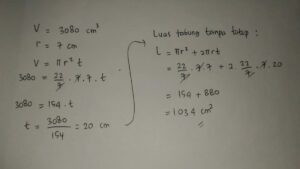 V = 3080 cm³
r = 7 cm
V = πr² t
3080 = 22/7 . 7 . 7 . t
3080 = 154 . t
t = 3080/154 = 20 cm
Luas tabung tanpa tutup :
L = πr² + 2πrt
= 22/7 . 7 . 7 + 2 . 22/7 . 7 . 20
= 154 + 880
= 1034 cm²